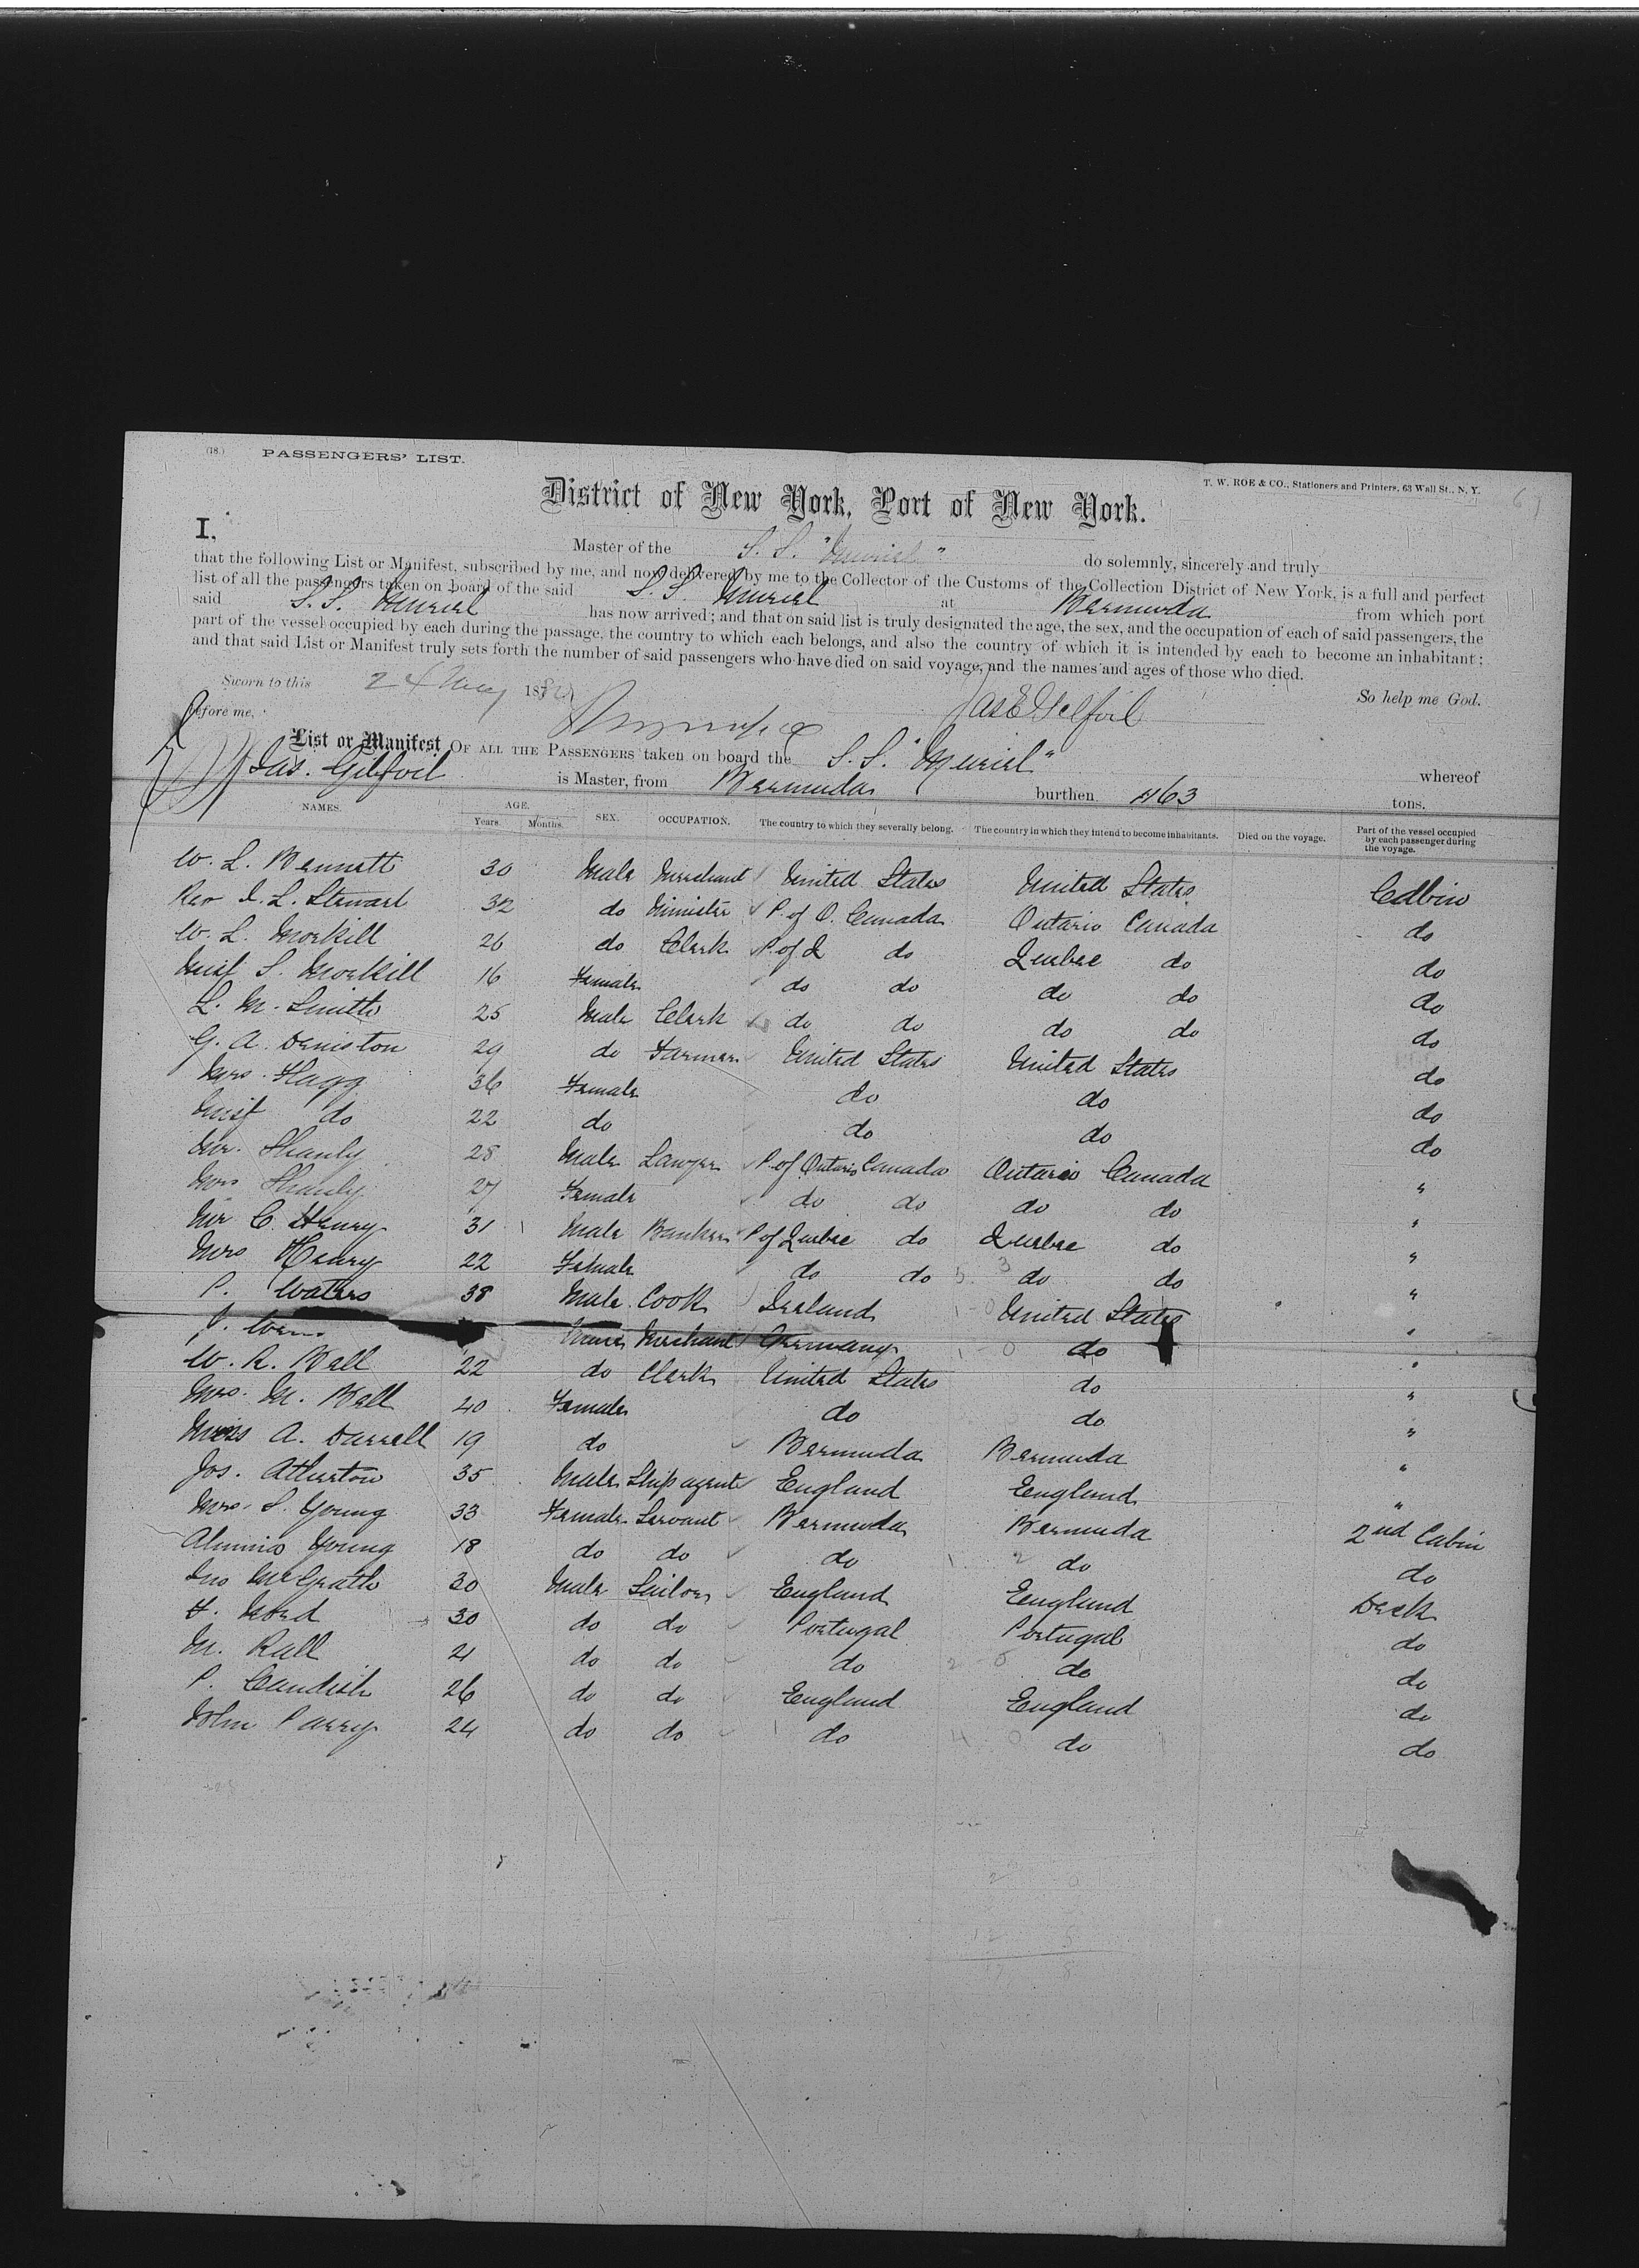 (18.) PASSENGERS' LIST.
T. W. ROE & CO., Stationers and Printers, 63 Wall St., N. Y.
District of New York, Port of New York.
I, Master of the S. S. "Muriel" do solemnly, sincerely and truly
that the following List or Manifest, subscribed by me, and now delivered by me to the Collector of the Customs of the Collection District of New York, is a full and perfect
list of all the passengers taken on board of the said S. S. Muriel at Bermuda from which port
said S. S. Muriel has now arrived; and that on said list is truly designated the age, the sex, and the occupation of each of said passengers, the
part of the vessel occupied by each during the passage, the country to which each belongs, and also the country of which it is intended by each to become an inhabitant;
and that said List or Manifest truly sets forth the number of said passengers who have died on said voyage, and the names and ages of those who died.
Sworn to this 24 May 188 So help me God.
Before me, Jas E Gilfoil
List or Manifest OF ALL THE PASSENGERS taken on board the S. S. "Muriel" whereof
Jas. Gilfoil is Master, from Bermuda burthen 463 tons.
NAMES. AGE. Years. Months. SEX. OCCUPATION. The country to which they severally belong. The country in which they intend to become inhabitants. Died on the voyage. Part of the vessel occupied by each passenger during the voyage.
W. L. Bennett 30 Male Merchant United States United States Cabin
Rev I. L. Stewart 32 do Minister P. of O. Canada Ontario Canada do
W. L. Morkill 26 do Clerk P. of Q do Quebec do do
Miss S. Morkill 16 Female do do do do do
L. M. Smith 25 Male Clerk do do do do do
G. A. Deniston 29 do Farmer United States United States do
Mrs. Flagg 36 Female do do do
Miss do 22 do do do do
Mr. Shanly 28 Male Lawyer P. of Ontario Canada Ontario Canada "
Mrs Shanly 27 Female do do do do "
Mr C. Henry 31 Male Banker P of Quebec do Quebec do "
Mrs Henry 22 Female do do do do "
P. Waters 38 Male Cook Ireland United States "
J. Merchant Germany do "
W. R. Ball 22 do Clerk United States do "
Mrs. M. Ball 40 Female do do "
Miss A. Darrell 19 do Bermuda Bermuda "
Jos. Atherton 35 Male Ship agent England England "
Mrs. S. Young 33 Female Servant Bermuda Bermuda 2nd Cabin
Young 18 do do do do do
Jno McGrath 30 Male Sailor England England Deck
30 do do Portugal Portugal do
M. Rall 21 do do do do do
P. Candish 26 do do England England do
John Parry 24 do do do do do